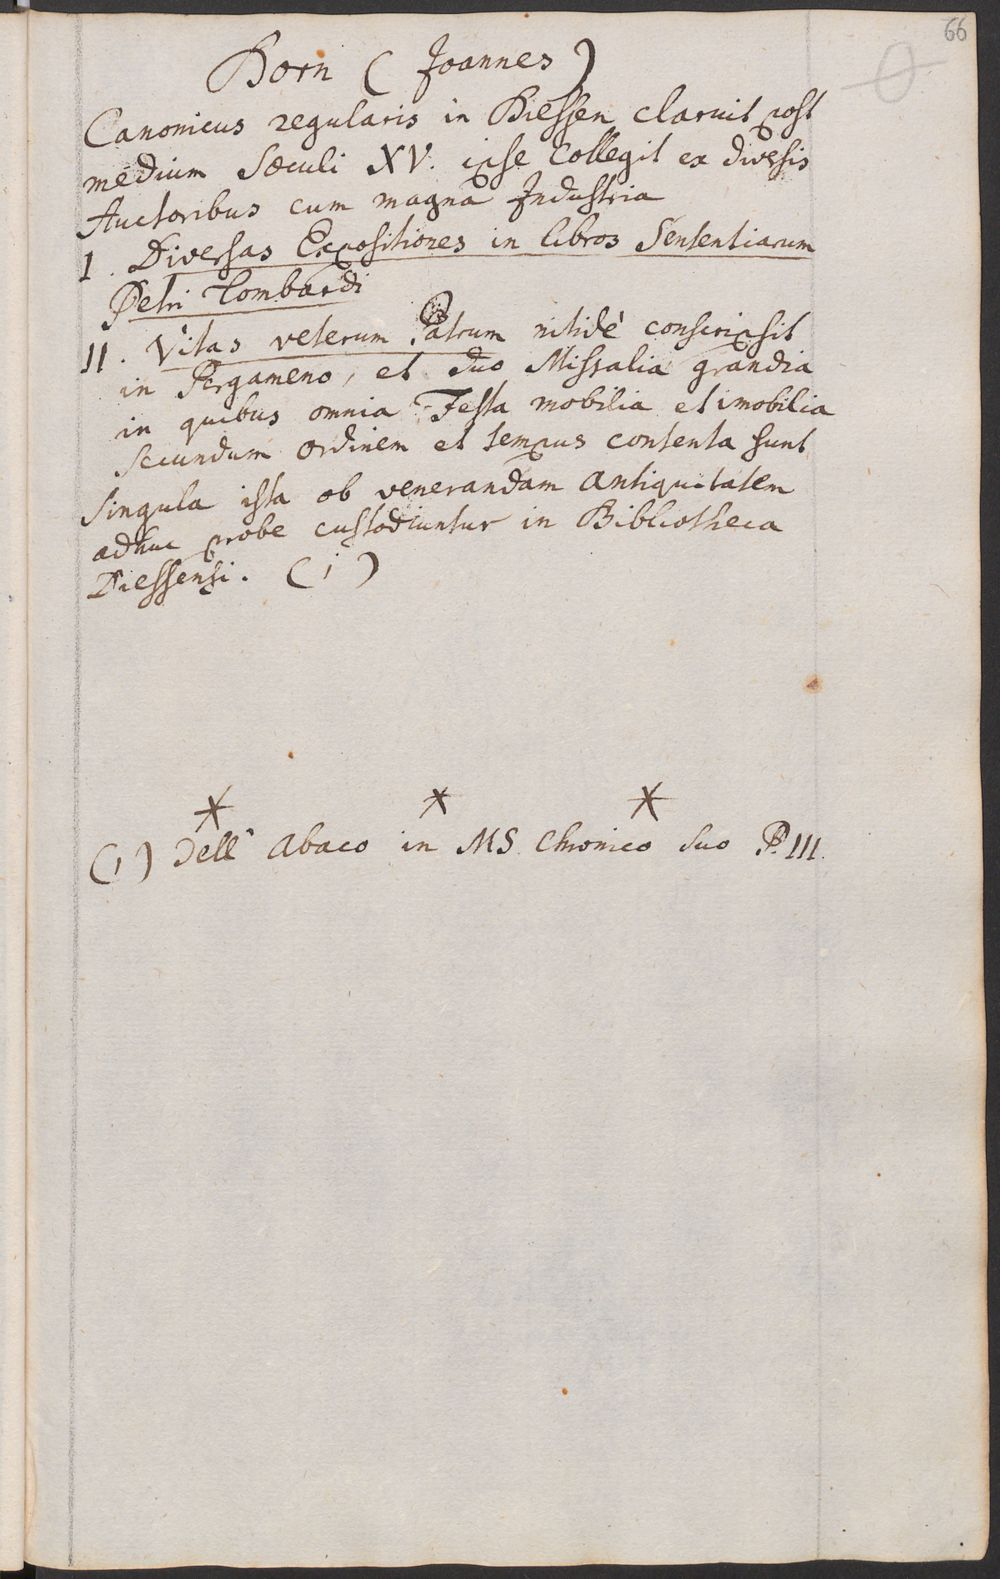 66
Born (Joannes)
Canonicus regularis in Diessen claruit post
medium Sæculi XV. ipse Collegit ex diversis
Auctoribus cum magna Industria
I. Diversas Expositiones in libros Sententiarum
Petri Lombardi
II. Vitas veterum Patrum nitidè conscripsit
in Pergameno, et duo Missalia grandia
in quibus omnia Festa mobilia et imobilia
secundum ordinem et tempus contenta sunt
Singula ista ob venerandam antiquitatem
adhuc probe custodiuntur in Bibliotheca
Diessensi. (1)
* * *
(1) Dell' Abaco in MS. Chronico suo P. III.